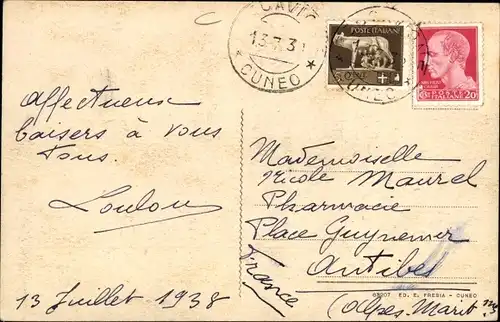 13.7.3
CUNEO
POSTE ITALIANE
CUNEO
POSTE ITALIANE
20
Affectueux
baisers à vous
tous.
Loulou
13 Juillet 1938
Mademoiselle
Nicole Maurel
Pharmacie
Place Guynemer
Antibes
(Alpes Marit mes
France
ED. E. FRESIA - CUNEO